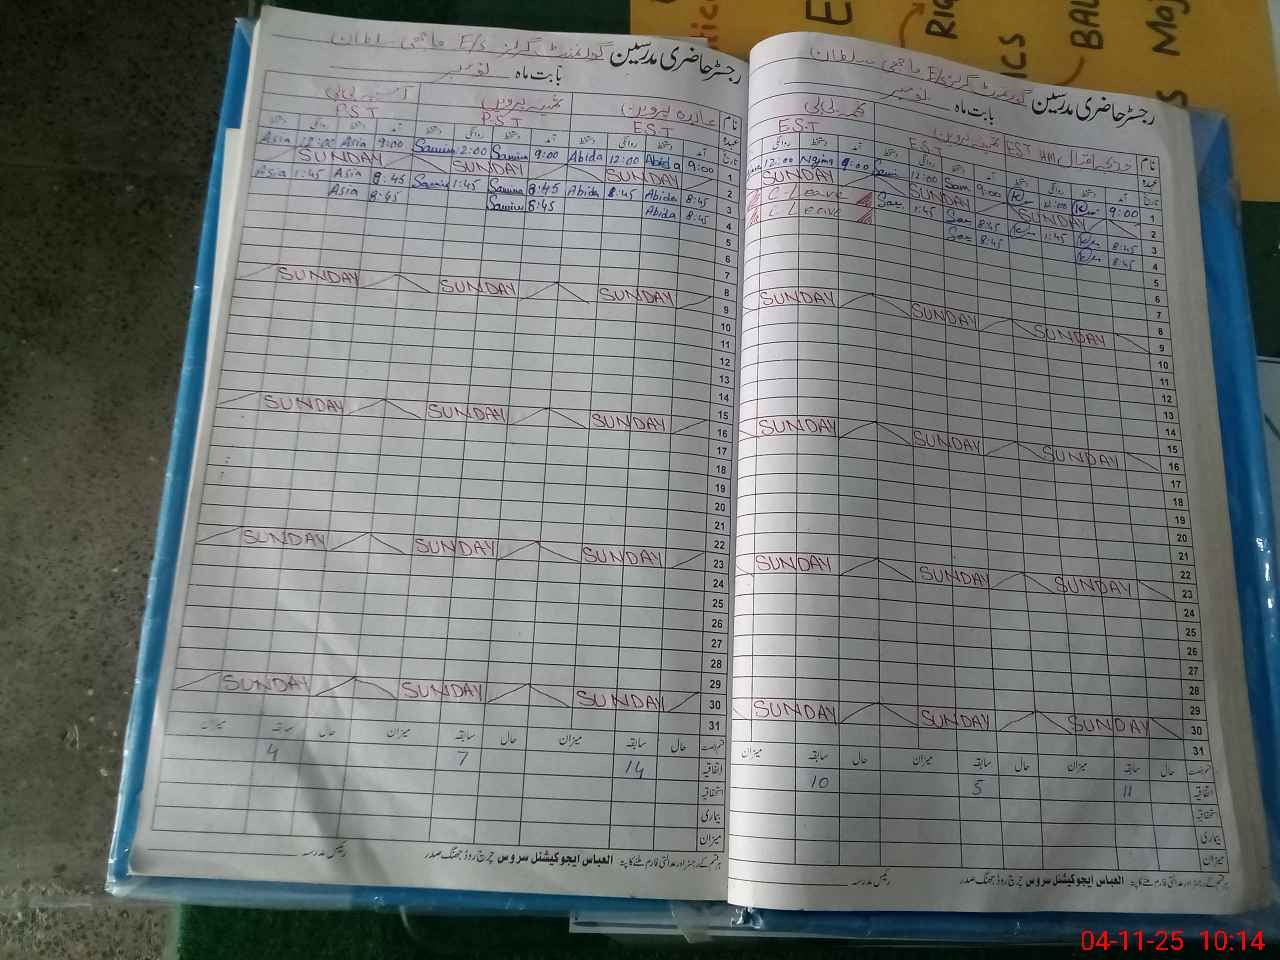 رجسٹر حاضری مدرسین گورنمنٹ گرلز E/s
بابت ماہ نومبر
نام
عہدہ
تاریخ
E.S.T HM
E.S.T
E.S.T
آمد دستخط روانگی دستخط
1 9:00 12:00 Sam 9:00 12:00 Najma 9:00 12:00
2 SUNDAY SUNDAY SUNDAY
3 8:45 1:45 Sam 8:45 1:45 C. Leave
4 8:45 8:45 C. Leave
5
6
7
8
9 SUNDAY SUNDAY SUNDAY
10
11
12
13
14
15
16 SUNDAY SUNDAY SUNDAY
17
18
19
20
21
22
23 SUNDAY SUNDAY SUNDAY
24
25
26
27
28
29
30 SUNDAY SUNDAY SUNDAY
31
حال سابقہ میزان حال سابقہ میزان حال سابقہ میزان
اتفاقیہ 11 5 10
بیماری
میزان
ہر قسم کے رجسٹر اور عدالتی فارم ملنے کا پتہ العباس ایجوکیشنل سروس چرچ روڈ جھنگ صدر
رئیس مدرسہ
رجسٹر حاضری مدرسین گورنمنٹ گرلز E/s
بابت ماہ نومبر
نام عابدہ پروین ثمینہ پروین آسیہ بی بی
عہدہ E.S.T P.S.T P.S.T
تاریخ آمد دستخط روانگی دستخط
1 9:00 Abida 12:00 Abida 9:00 Samina 12:00 Samina 9:00 Asia 12:00 Asia
2 SUNDAY SUNDAY SUNDAY
3 8:45 Abida 8:45 Abida 8:45 Samina 1:45 Samina 8:45 Asia 1:45 Asia
4 8:45 Abida 8:45 Samina 8:45 Asia
5
6
7
8
9 SUNDAY SUNDAY SUNDAY
10
11
12
13
14
15
16 SUNDAY SUNDAY SUNDAY
17
18
19
20
21
22
23 SUNDAY SUNDAY SUNDAY
24
25
26
27
28
29
30 SUNDAY SUNDAY SUNDAY
31
حال سابقہ میزان حال سابقہ میزان حال سابقہ میزان
اتفاقیہ 14 7 4
بیماری
میزان
ہر قسم کے رجسٹر اور عدالتی فارم ملنے کا پتہ العباس ایجوکیشنل سروس چرچ روڈ جھنگ صدر
رئیس مدرسہ
04-11-25 10:14